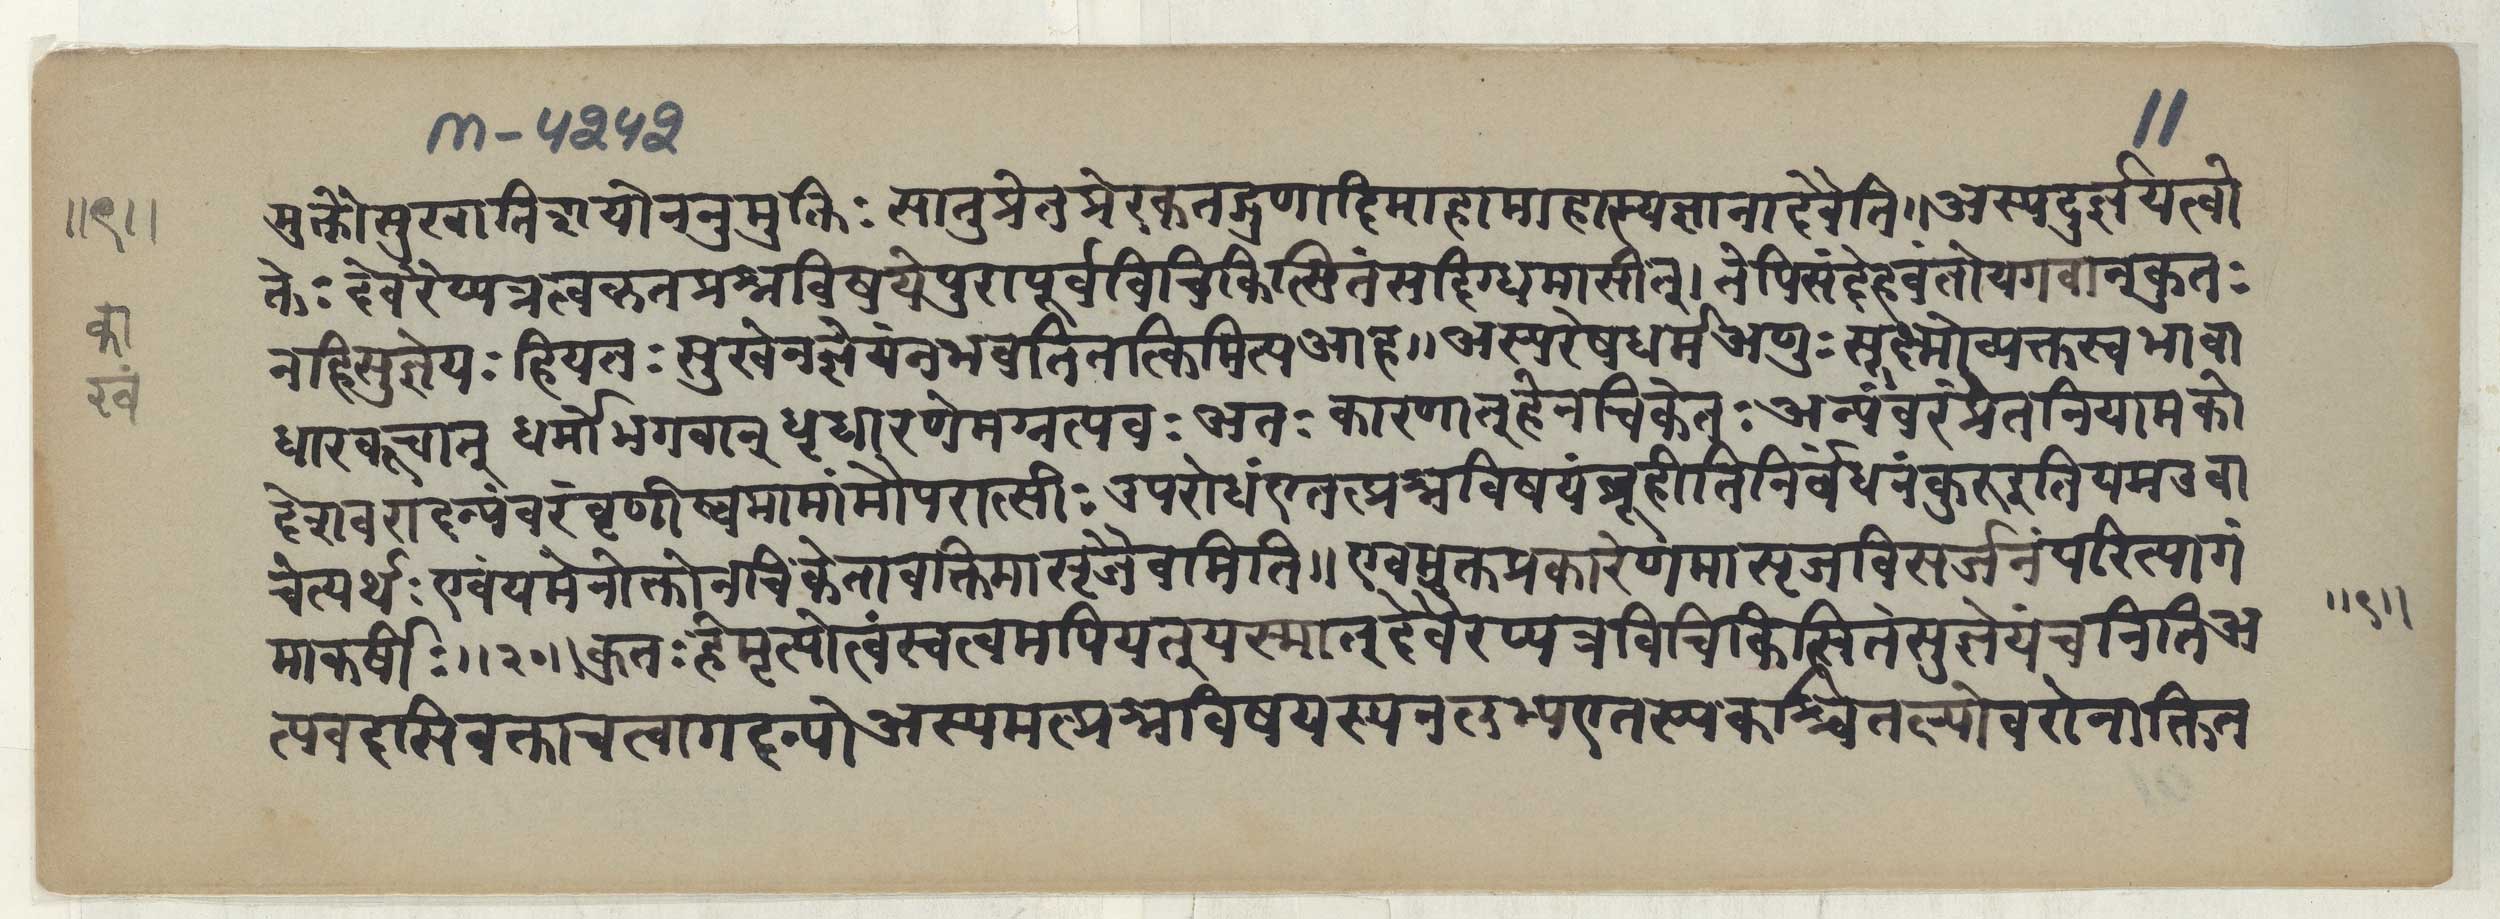 m-५२५२
11
॥९॥
का
खं
मुक्तौसुखातिशयोननुमुक्तिः सातुप्रेतप्रेरकतद्गुणादिमाहामाहात्म्यज्ञानादेवैति॥अस्यदुर्ज्ञेयत्वो
क्तेः देवैरप्यत्रत्वकृतप्रश्नविषयेपुरापूर्वविचिकित्सितंसदिग्धमासीत्। तेपिसंदेहवंतोयगवान्कुतः
नहिसुज्ञेयः हियतः सुखेनज्ञेयंनभवतितत्किमित्यआह॥अस्परेषधर्मअणुः सूक्ष्मोव्यक्तस्वभावा
धारकत्वात् धर्मोभगवान् धृधारणेमग्नत्पवः अतः कारणात्हेनचिकेतः अन्यंवरंप्रेतनियामको
देशवरादन्यंवरंवृणीष्वमामांमौपरात्सीः उपरोधंएतत्प्रश्नविषयंब्रूहीतिनिर्वंधनंकुरुइतियमउवा
चेत्यर्थः एवंयमेनोक्तोनचिकेतावक्तिमासृजैवमिति॥एवमुक्तप्रकारेणमासृजविसर्जनंपरित्यागं
माकर्षीः॥२०॥कुतः हेमृत्योत्वंस्वत्वमपियत्यस्मात्देवैरप्यत्रविचिकित्सितंसुज्ञेयंचनितिअ
त्यवदसिवक्ताचत्वागदृन्योअस्यमत्प्रश्नविषयस्यनलभ्यएतस्यकश्चितल्योवरोनाक्तिन
॥९॥